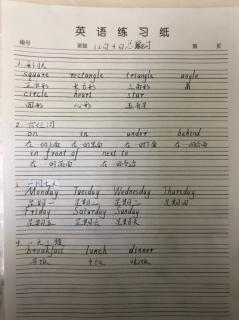 英语练习纸
编号 班级 12月4日 第 页
1.形状
square rectangle triangle angle
正方形 长方形 三角形 角
circle heart star
圆形 心形 五角星
2.方位词
on in under behind
在…的上面 在…的里面 在…的下面 在…的后面
in front of next to
在…的前面 在…的旁边
3.
Monday Tuesday Wednesday Thursday
星期一 星期二 星期三 星期四
Friday Saturday Sunday
星期五 星期六 星期日
4.一天三餐
breakfast lunch dinner
早饭 午饭 晚饭